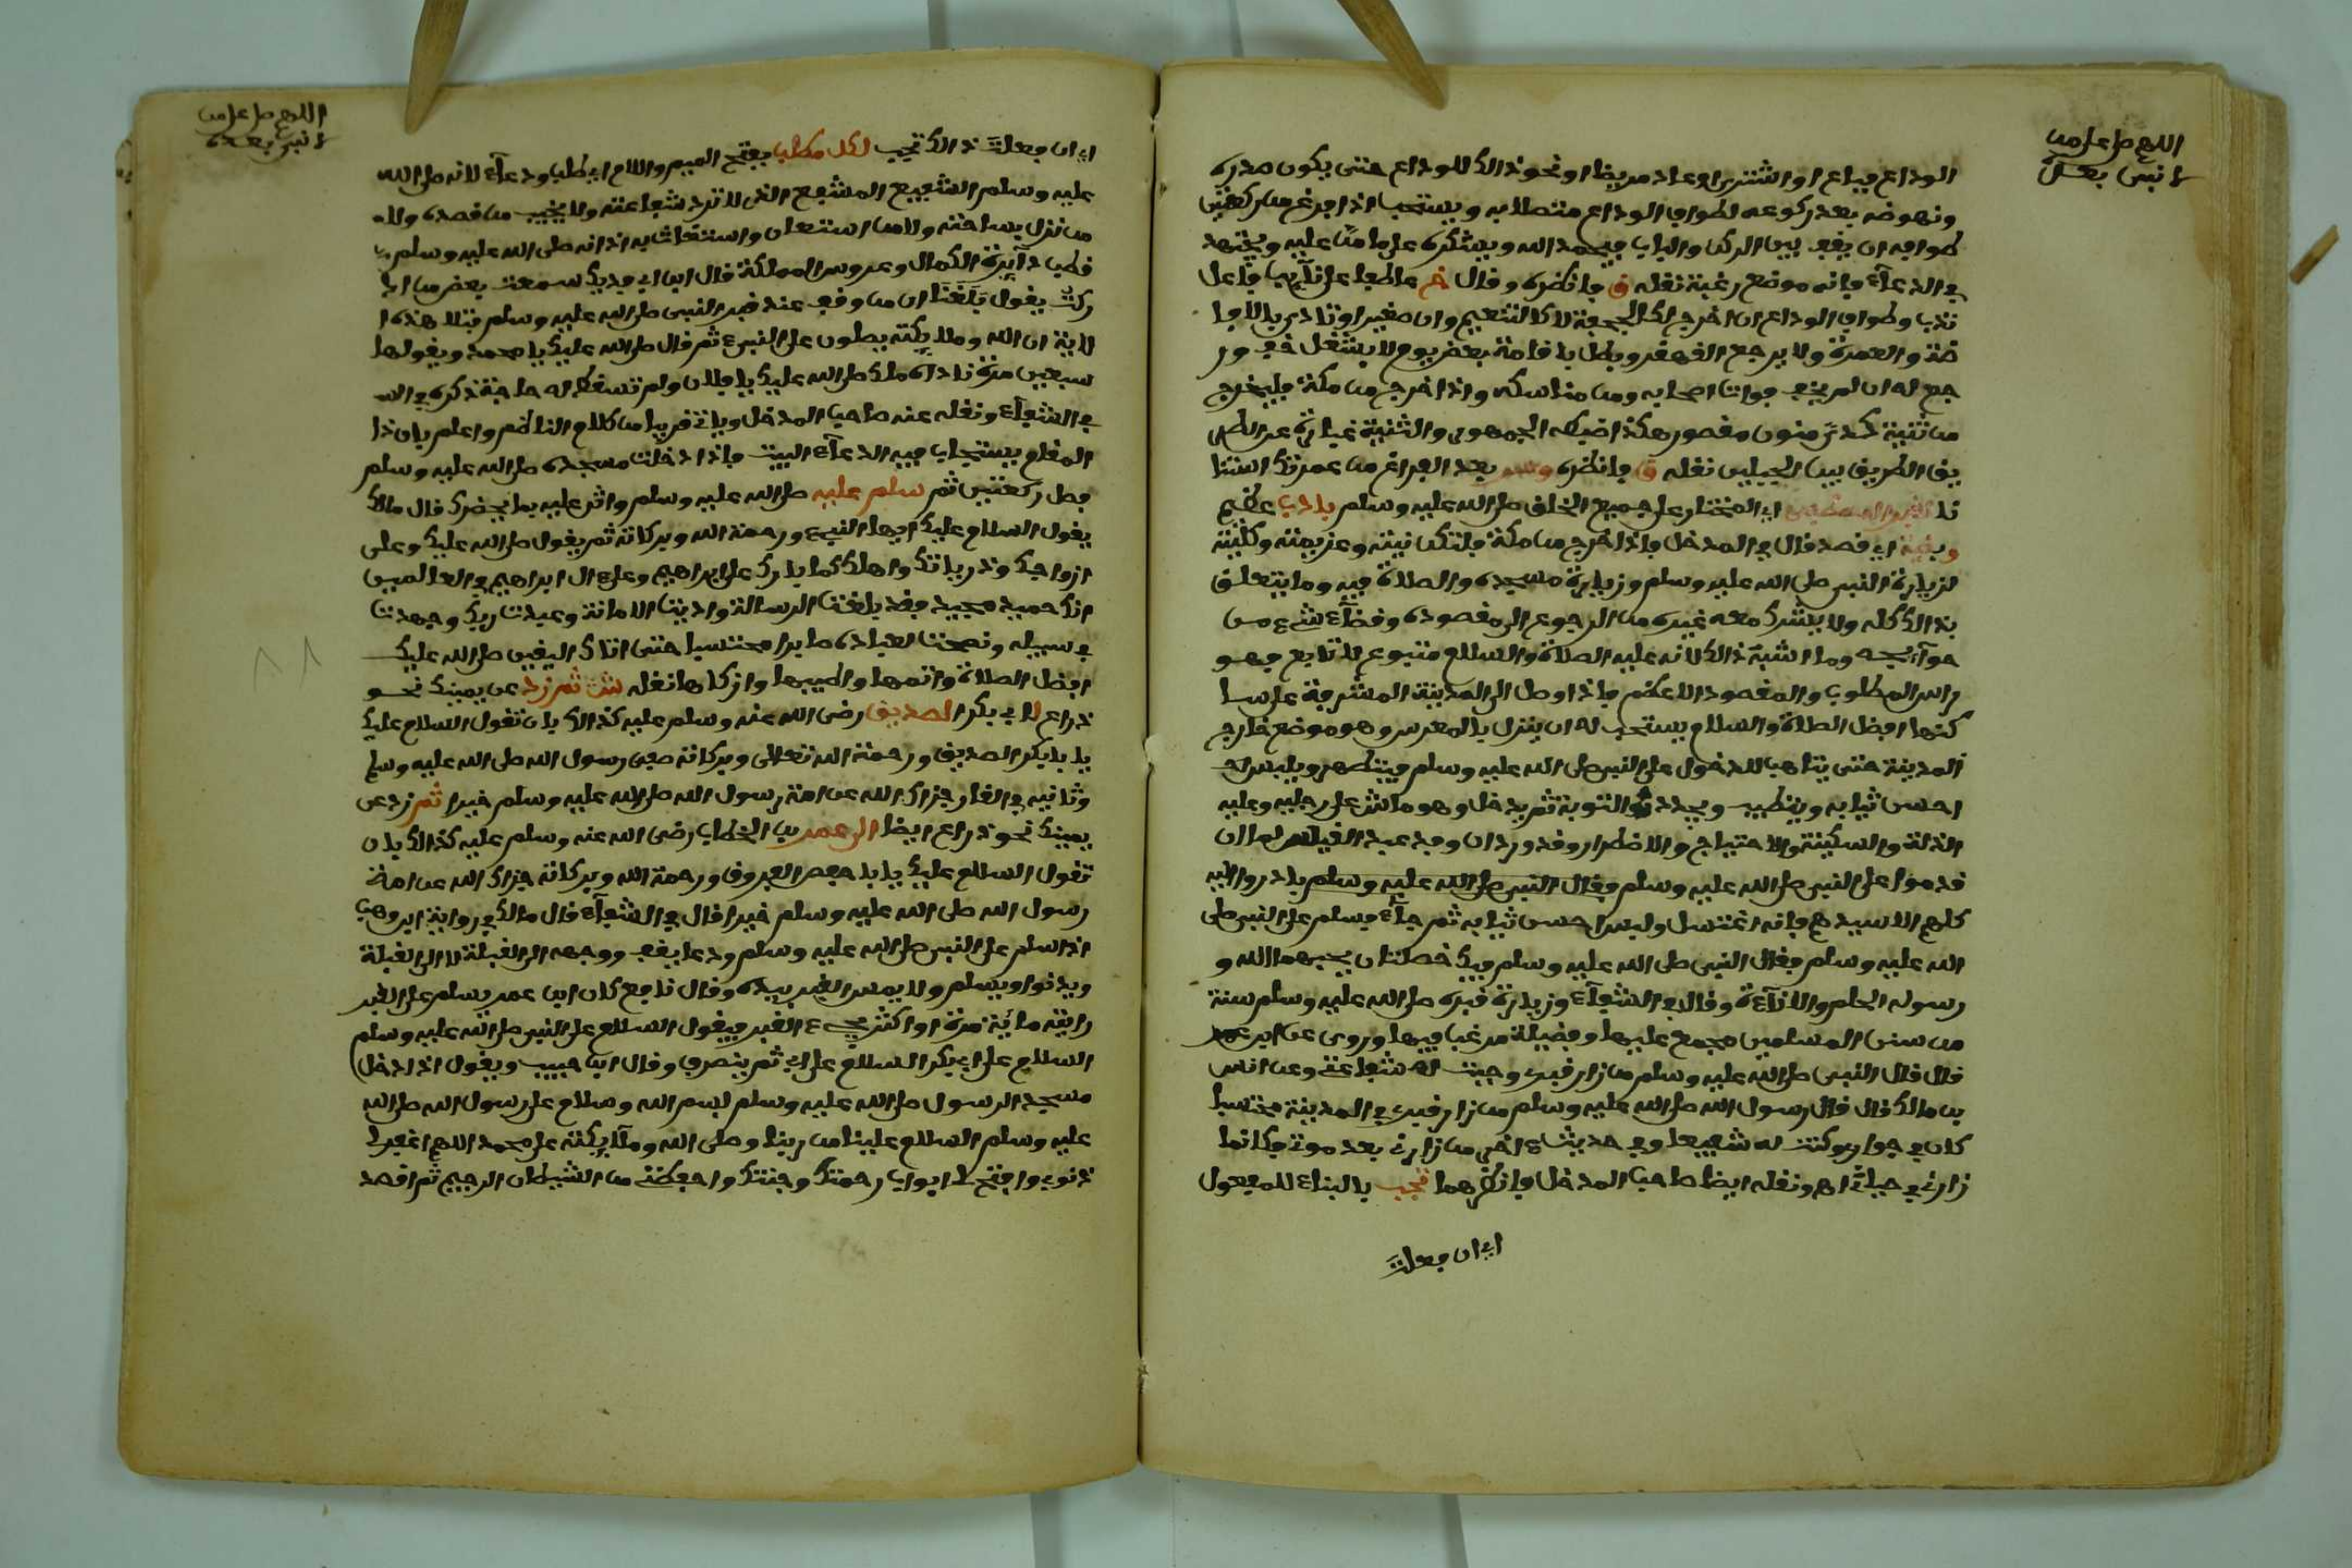 اللهم صل على من
لا نبي بعده
الوداع فباع او اشترى او عاد مريضا او نحو ذالك للوداع حتى يكون صدره
ونهوضه بعد ركوعه لطواف الوداع متصلا به ويستحب اذا فرغ من ركعتي
طوافه ان يقف بين الركن والباب فيحمد الله ويشكره على ما من عليه ويجتهد
في الدعاء فانه موضع رغبة نقله ق فانظره وقال خ عاطفا على نائب فاعل
ندب وطواف الوداع ان خرج لكالجحفة لا كالتنعيم وان صغيرا وتادى بالافا
ضة والعمرة ولا يرجع القهقرى وبطل باقامة بعض يوم لا بشغل خف ور
جع له ان لم يخف فوات اصحابه ومن مناسكه واذا خرج من مكة فليخرج
من ثنية كدى منون مقصور هكذا ضبطه الجمهور والثنية عبارة عن الطر
يق الطريق بين الجبلين نقله ق فانظره وسر بعد الفراغ من عمرتك استنا
نا لقبر المصطفى اي المختار على جميع الخلق صلى الله عليه وسلم بادب عظيم
ونية اي قصد قال في المدخل فاذا خرج من مكة فلتكن نيته وعزيمته وكليته
لزيارة النبي صلى الله عليه وسلم وزيارة مسجده والصلاة فيه وما يتعلق
بذالك كله ولا يشرك معه غيره من الرجوع الى مقصوده وقضاء شيء من
حوائجه وما اشبه ذالك لانه عليه الصلاة والسلام متبوع لا تابع فهو
راس المطلوب والمقصود الاعظم فاذا وصل الى المدينة المشرفة على سا
كنها افضل الصلاة والسلام يستحب له ان ينزل بالمعرس وهو موضع خارج
المدينة حتى يتاهب للدخول على النبي صلى الله عليه وسلم فيتطهر ويلبس
احسن ثيابه ويتطيب ويجدد التوبة ثم يدخل وهو ماش على رجليه وعليه
الذلة والسكينة والاحتياج والاضطرار وقد ورد ان وفد عبد القيس لما ان
قدموا على النبي صلى الله عليه وسلم فقال النبي صلى الله عليه وسلم بادروا اليه
كلهم الا سيدهم فانه اغتسل ولبس احسن ثيابه ثم جاء فسلم على النبي صلى
الله عليه وسلم فقال النبي صلى الله عليه وسلم فيك خصلتان يحبهما الله و
رسوله الحلم والاناءة وقال في الشفاء وزيارة قبره صلى الله عليه وسلم سنة
من سنن المسلمين مجمع عليها وفضيلة مرغب فيها وروي عن ابن عمر
قال قال النبي صلى الله عليه وسلم من زار قبري وجبت له شفاعتي وعن انس
بن مالك قال قال رسول الله صلى الله عليه وسلم من زارني في المدينة محتسبا
كان في جواري وكنت له شفيعا وفي حديث اخر من زارني بعد موتي فكانما
زارني في حياتي اه ونقله ايضا صاحب المدخل فانظرهما تجب بالبناء للمفعول
اي ان فعلت
اللهم صل على من
لا نبي بعده
اي ان فعلت ذالك تجب لكل مطلب بفتح الميم واللام اي طلب ودعاء لانه صلى الله
عليه وسلم الشفيع المشفع الذي لا ترد شفاعته ولا يخيب من قصده ولا
من نزل بساحته ولا من استعان واستغاث به اذ انه صلى الله عليه وسلم
قطب دائرة الكمال وعروس المملكة قال ابن ابي فديك سمعت بعض من اد
ركت يقول بلغنا ان من وقف عند قبر النبي صلى الله عليه وسلم فتلا هذه ا
لاية ان الله وملايكته يصلون على النبيء ثم قال صلى الله عليك يا محمد ويقولها
سبعين مرة ناداه ملك صلى الله عليك يا فلان ولم تسقط له حاجة ذكره في الش
في الشفاء ونقله عنه صاحب المدخل وياتي قريبا من كلام الناظم واعلم بان ذا
المقام يستجاب فيه الدعاء البيت فاذا دخلت مسجده صلى الله عليه وسلم
فصل ركعتين ثم سلم عليه صلى الله عليه وسلم واثن عليه بما يحضرك قال مالك
يقول السلام عليك ايها النبيء ورحمة الله وبركاته ثم يقول صلى الله عليك وعلى
ازواجك وذرياتك واهلك كما بارك على ابراهيم وعلى ال ابراهيم في العالمين
انك حميد مجيد فقد بلغت الرسالة واديت الامانة وعبدت ربك وجهدت
في سبيله ونصحت لعباده صابرا محتسبا حتى اتاك اليقين صلى الله عليك
افضل الصلاة واتمها واطيبها وازكاها نقله ش ثم زد عن يمينك نحو
ذراع لابي بكر الصديق رضي الله عنه وسلم عليه كذالك بان تقول السلام عليك
يا ابا بكر الصديق ورحمة الله تعالى وبركاته صفي رسول الله صلى الله عليه وسلم
وثانيه في الغار جزاك الله عن امة رسول الله صلى الله عليه وسلم خيرا ثم زد عن
يمينك نحو ذراع ايضا الى عمر بن الخطاب رضي الله عنه وسلم عليه كذالك بان
تقول السلام عليك يا ابا حفص الفروق ورحمة الله وبركاته جزاك الله عن امة
رسول الله صلى الله عليه وسلم خيرا قال في الشفاء قال مالك في رواية ابن وهب
اذا سلم على النبي صلى الله عليه وسلم ودعا يقف ووجهه الى القبلة لا الى القبلة
ويدنوا ويسلم ولا يمس القبر بيده وقال نافع كان ابن عمر يسلم على القبر
رايته مائة مرة او اكثر يجيء القبر فيقول السلام على النبي صلى الله عليه وسلم
السلام على ابي بكر السلام على ابي ثم ينصرف وقال ابن حبيب ويقول اذا دخل
مسجد الرسول صلى الله عليه وسلم بسم الله وسلام على رسول الله صلى الله
عليه وسلم السلام علينا من ربنا وصلى الله وملايكته على محمد اللهم اغفر لي
ذنوبي وافتح لي ابواب رحمتك وجنتك واحفظني من الشيطان الرجيم ثم اقصد